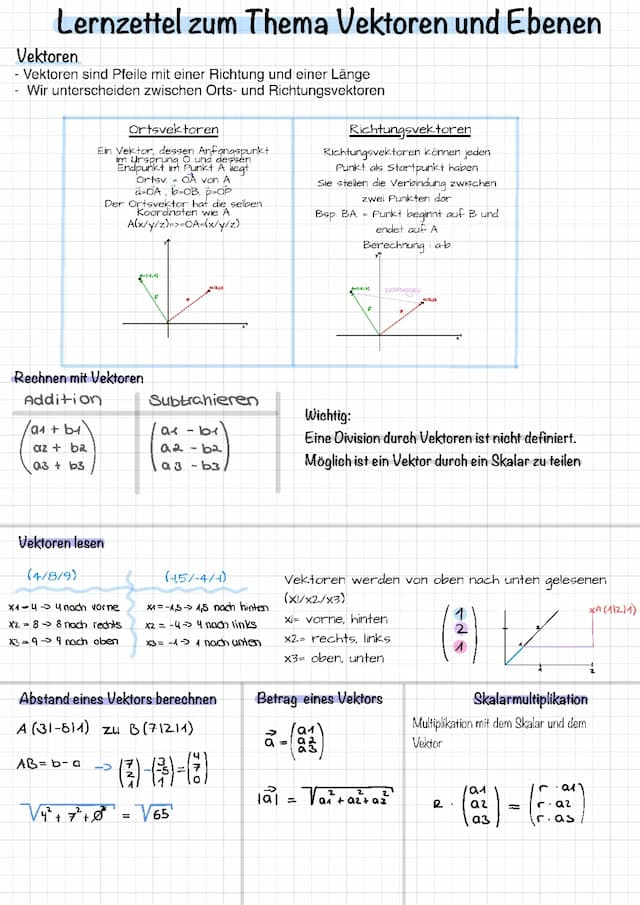 Lernzettel zum Thema Vektoren und Ebenen
Vektoren
- Vektoren sind Pfeile mit einer Richtung und einer Länge
- Wir unterscheiden zwischen Orts- und Richtungsvektoren
Ortsvektoren
Ein Vektor, dessen Anfangspunkt
im Ursprung O und dessen
Endpunkt im Punkt A liegt
Ortsv. = OA von A
a=OA , b=OB, p=OP
Der Ortsvektor hat die selben
Koordinaten wie A
A(x/y/z)=>=OA=(x/y/z)
Richtungsvektoren
Richtungsvektoren können jeden
Punkt als Startpunkt haben
Sie stellen die Verbindung zwischen
zwei Punkten dar
Bsp. BA = Punkt beginnt auf B und
endet auf A
Berechnung : a-b
Rechnen mit Vektoren
Addition
a1 + b1
a2 + b2
a3 + b3
Subtrahieren
a1 - b1
a2 - b2
a3 - b3
Wichtig:
Eine Division durch Vektoren ist nicht definiert.
Möglich ist ein Vektor durch ein Skalar zu teilen
Vektoren lesen
(4/8/9)
x1=4 → 4 nach vorne
x2 = 8 → 8 nach rechts
x3=9 → 9 nach oben
(-1,5/-4/-1)
x1=-1,5 → 1,5 nach hinten
x2 = -4 → 4 nach links
x3= -1 → 1 nach unten
Vektoren werden von oben nach unten gelesenen
(x1/x2/x3)
x1= vorne, hinten
x2= rechts, links
x3= oben, unten
1
2
1
xA(1|2|1)
1
2
Abstand eines Vektors berechnen
A (3|-5|1) zu B(7|2|1)
AB= b-a → (7 2 1) - (3 -5 1) = (4 7 0)
√4² + 7² + 0² = √65
Betrag eines Vektors
a = (a1 a2 a3)
|a| = √a1² + a2² + a3²
Skalarmultiplikation
Multiplikation mit dem Skalar und dem
Vektor
R · (a1 a2 a3) = (r · a1 r · a2 r · a3)